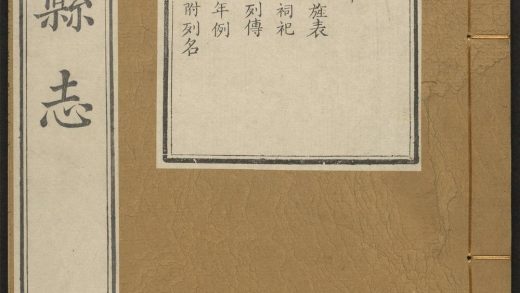 縣志
旌表
祠祀
列傳
年例
附列名